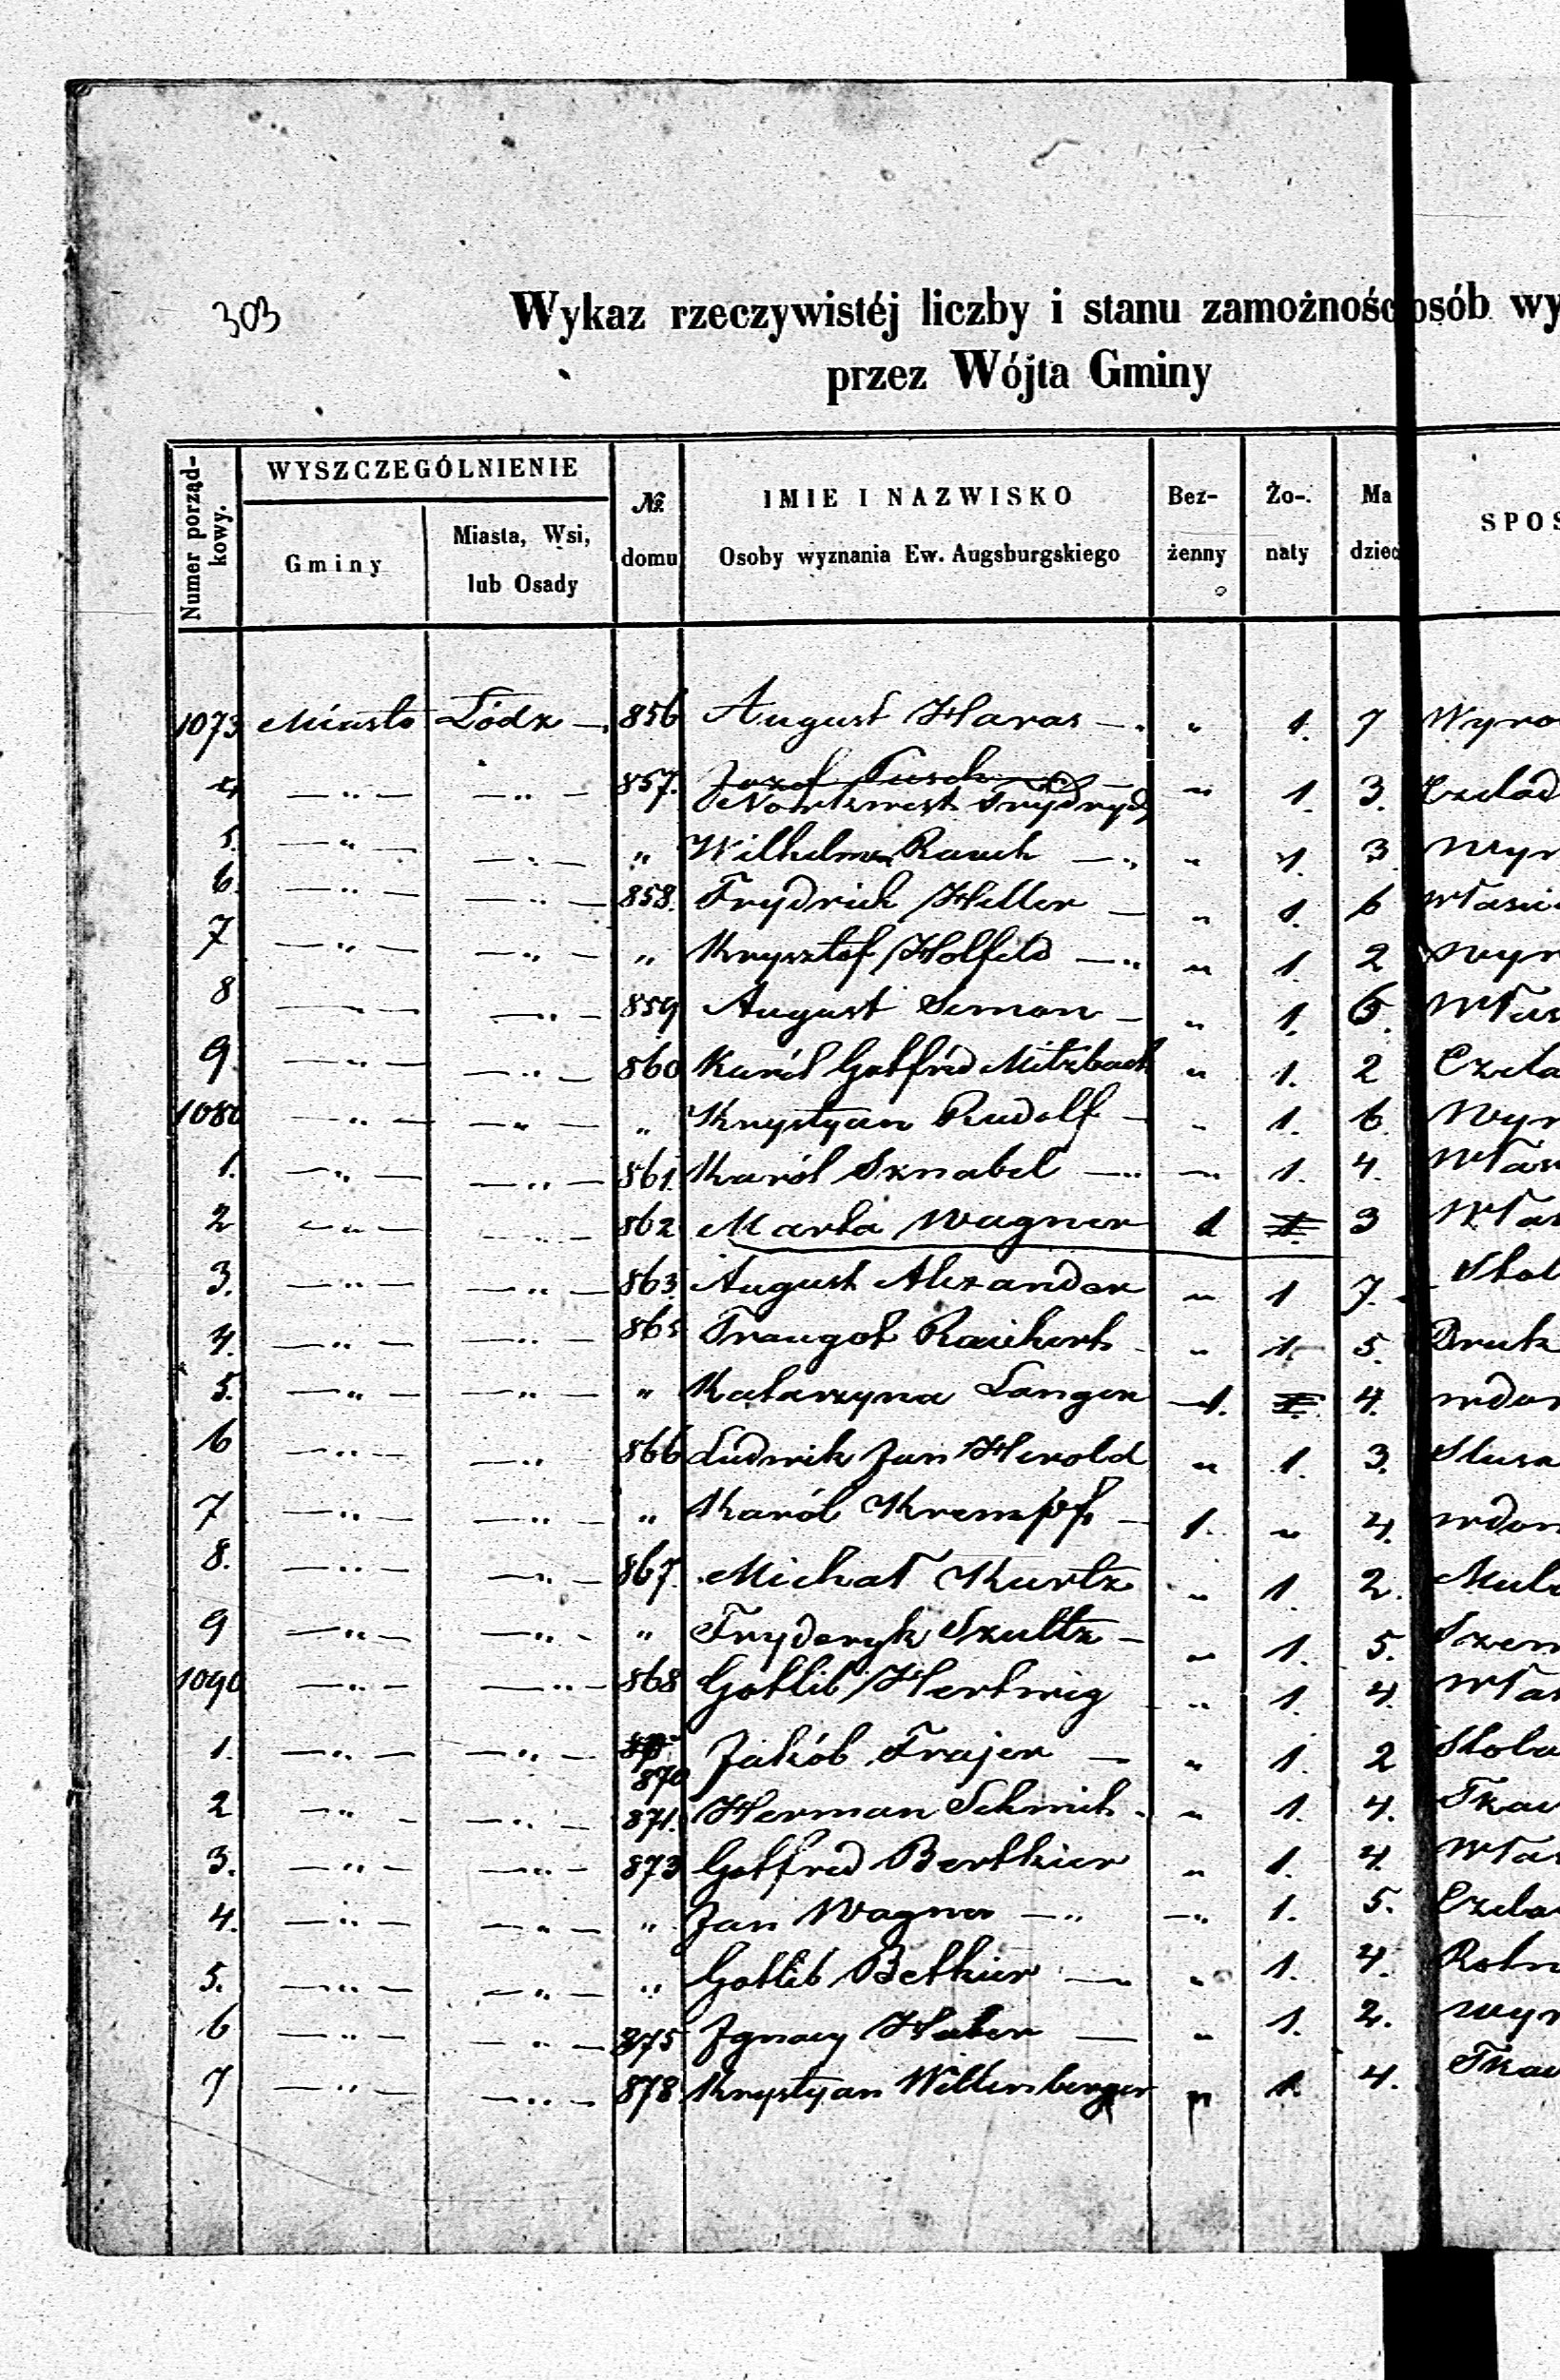 303
Wykaz rzeczywistéj liczby i stanu zamożnośc osób wy
przez Wójta Gminy
Numer porząd-
kowy.
WYSZCZEGÓLNIENIE
Gminy
Miasta, Wsi,
lub Osady
№
domu
IMIE I NAZWISKO
Osoby wyznania Ew. Augsburgskiego
Bez-
żenny
Żo-
naty
Ma
dziec
SPOS
1073 Miasto Łódz 856 August Haras " 1. 7 Wyro
4 " " 857. Jozef Tusch
Frydrych " 1. 3. Czelad
5. " " " Wilhelm Rauch " 1. 3 Wyr
6. " " 858. Frydrich Heller " 1. 6 Właści
7 " " " Krysztof Holfeld " 1. 2 Wyr
8 " " 859 August Semon " 1. 6. Włas
9 " " 860 Karól Gotfrid Mitzbach " 1. 2 Czela
1080 " " " Krystyan Rudolf " 1. 6. Wyr
1. " " 861. Karól Sznabel " 1. 4. Włas
2 " " 862 Marta Wagner 1 1. 3 Włas
3. " " 863. August Alexander " 1 7. Stol
4. " " 865 Traugot Raichert " 1. 5. Druk
5. " " " Katarzyna Langer 1. 1. 4. wdow
6 " " 866 Ludwik Jan Herold " 1. 3. Slusa
7 " " " Karól Krempf 1. " 4. wdow
8. " " 867. Michał Kurtz " 1. 2. Mula
9 " " " Fryderyk Szultz " 1. 5. Szew
1090 " " 868 Gotlib Hertwig " 1. 4. Włas
1. " " 870 Jakób Frajer " 1. 2 Stola
2 " " 871. Herman Schmidt " 1. 4. Tkac
3. " " 873 Gotfred Bertkier " 1. 4. Włas
4. " " " Jan Wagner " 1. 5. Czela
5. " " " Gotlib Betkier " 1. 4. Roln
6 " " 875 Ignacy Huber " 1. 2. Wyr
7 " " 878 Krystyan Wittenberger " 1. 4. Tkac